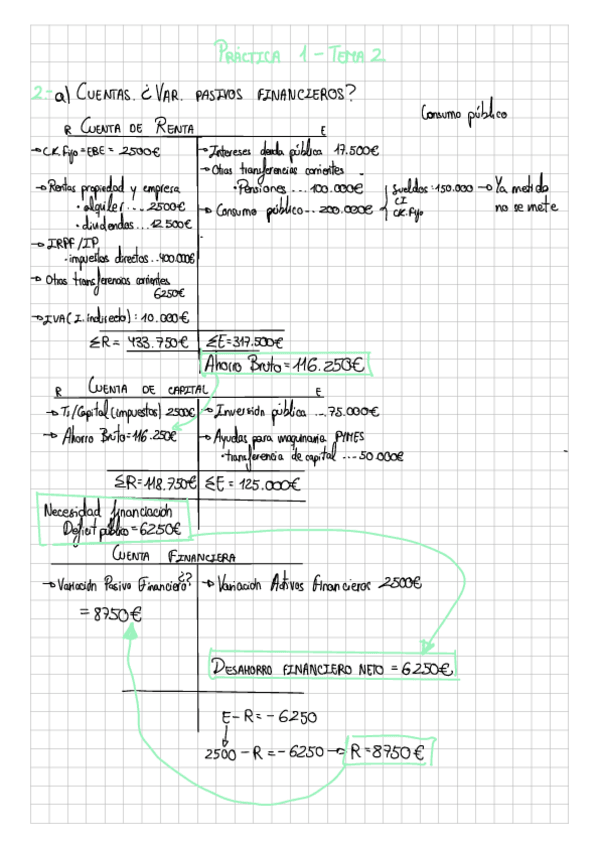 PRÁCTICA 1 - TEMA 2
2.- a) CUENTAS. ¿VAR. PASIVOS FINANCIEROS?
Consumo público
R CUENTA DE RENTA E
→ CK. Fijo = EBE = 2500€
→ Intereses deuda pública 17.500€
→ Otras transferencias corrientes
· Pensiones ... 100.000€
→ Consumo público... 200.000€
Sueldos: 150.000 → Ya metido
CI
CK. Fijo
no se mete
→ Rentas propiedad y empresa
· alquiler.... 2500€
· dividendos... 12.500€
→ IRPF / IP
· impuestos directos..400.000€
→ Otras transferencias corrientes
6250€
→ IVA (I. indirecto): 10.000€
ΣR = 433.750€ ΣE = 317.500€
AHORRO BRUTO = 116.250€
R CUENTA DE CAPITAL E
→ Ti/Capital (impuestos) 2500€
→ Inversión pública ... 75.000€
→ Ahorro Bruto = 116.250€
→ Ayudas para maquinaria PYMES
· transferencia de capital .... 50.000€
ΣR = 118.750€ ΣE = 125.000€
Necesidad financiación
Deficit público = 6250€
CUENTA FINANCIERA
→ Variación Pasivo Financiero ¿?
→ Variación Activos Financieros 2500€
= 8750€
DESAHORRO FINANCIERO NETO = 6250€
E - R = - 6250
2500 - R = - 6250 → R = 8750€